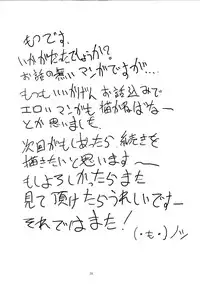 もつです。
いかがたたでしょうか?
お話の無いマンガですが…。
もっといいかげんお話込みで
エロいマンがも描かねばなー
とか思いました。
次回がもしあったら続きを
描きたいと思います〜
もしよろしかったらまた
見て頂けたらうれしいですー
それではまた!
(・も・)ノシ